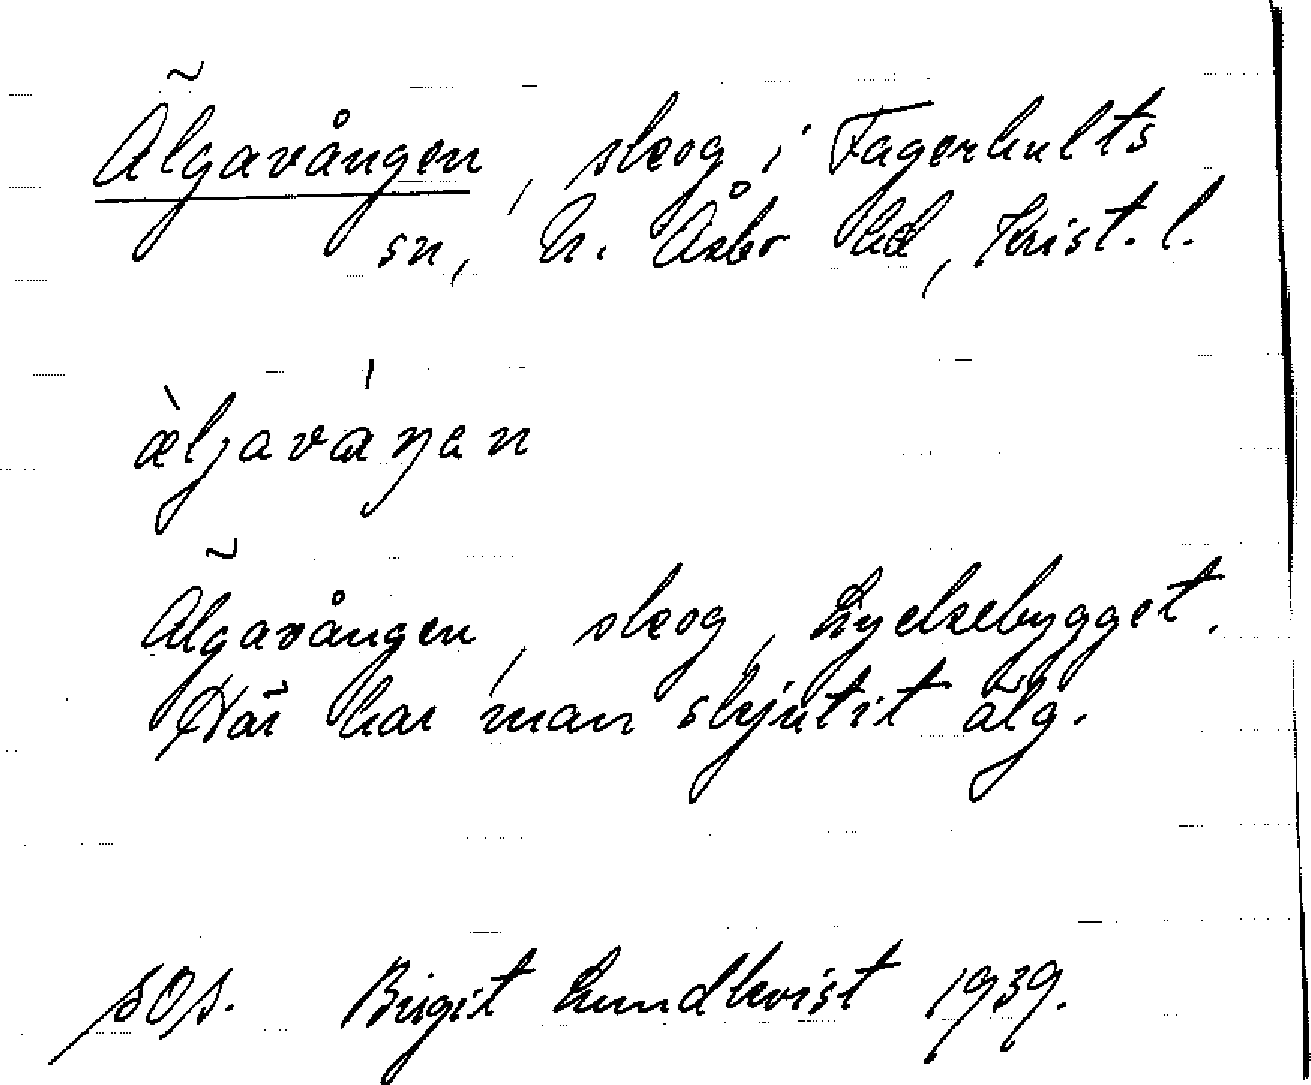 Älgavången, skog i Fagerhults
sn, N. Åsbo hd, Krist. l.
æ̀ljavá̱ŋen
Älgavången, skog, Lyckebygget.
Här har man skjutit älg.
SOS. Birgit Lundkvist 1939.